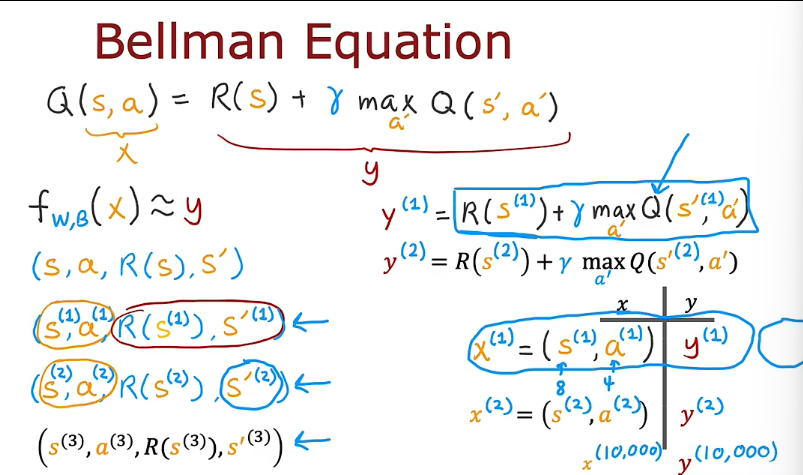 Bellman Equation
Q(s, a) = R(s) + γ max Q(s', a')
a'
x
y
f_{W,B}(x) ≈ y
(s, a, R(s), s')
(s^{(1)}, a^{(1)}, R(s^{(1)}), s'^{(1)}) ←
(s^{(2)}, a^{(2)}, R(s^{(2)}), s'^{(2)}) ←
(s^{(3)}, a^{(3)}, R(s^{(3)}), s'^{(3)}) ←
y^{(1)} = R(s^{(1)}) + γ max Q(s'^{(1)}, a')
a'
y^{(2)} = R(s^{(2)}) + γ max Q(s'^{(2)}, a')
a'
x y
x^{(1)} = (s^{(1)}, a^{(1)}) y^{(1)}
8 4
x^{(2)} = (s^{(2)}, a^{(2)}) y^{(2)}
x^{(10,000)} y^{(10,000)}